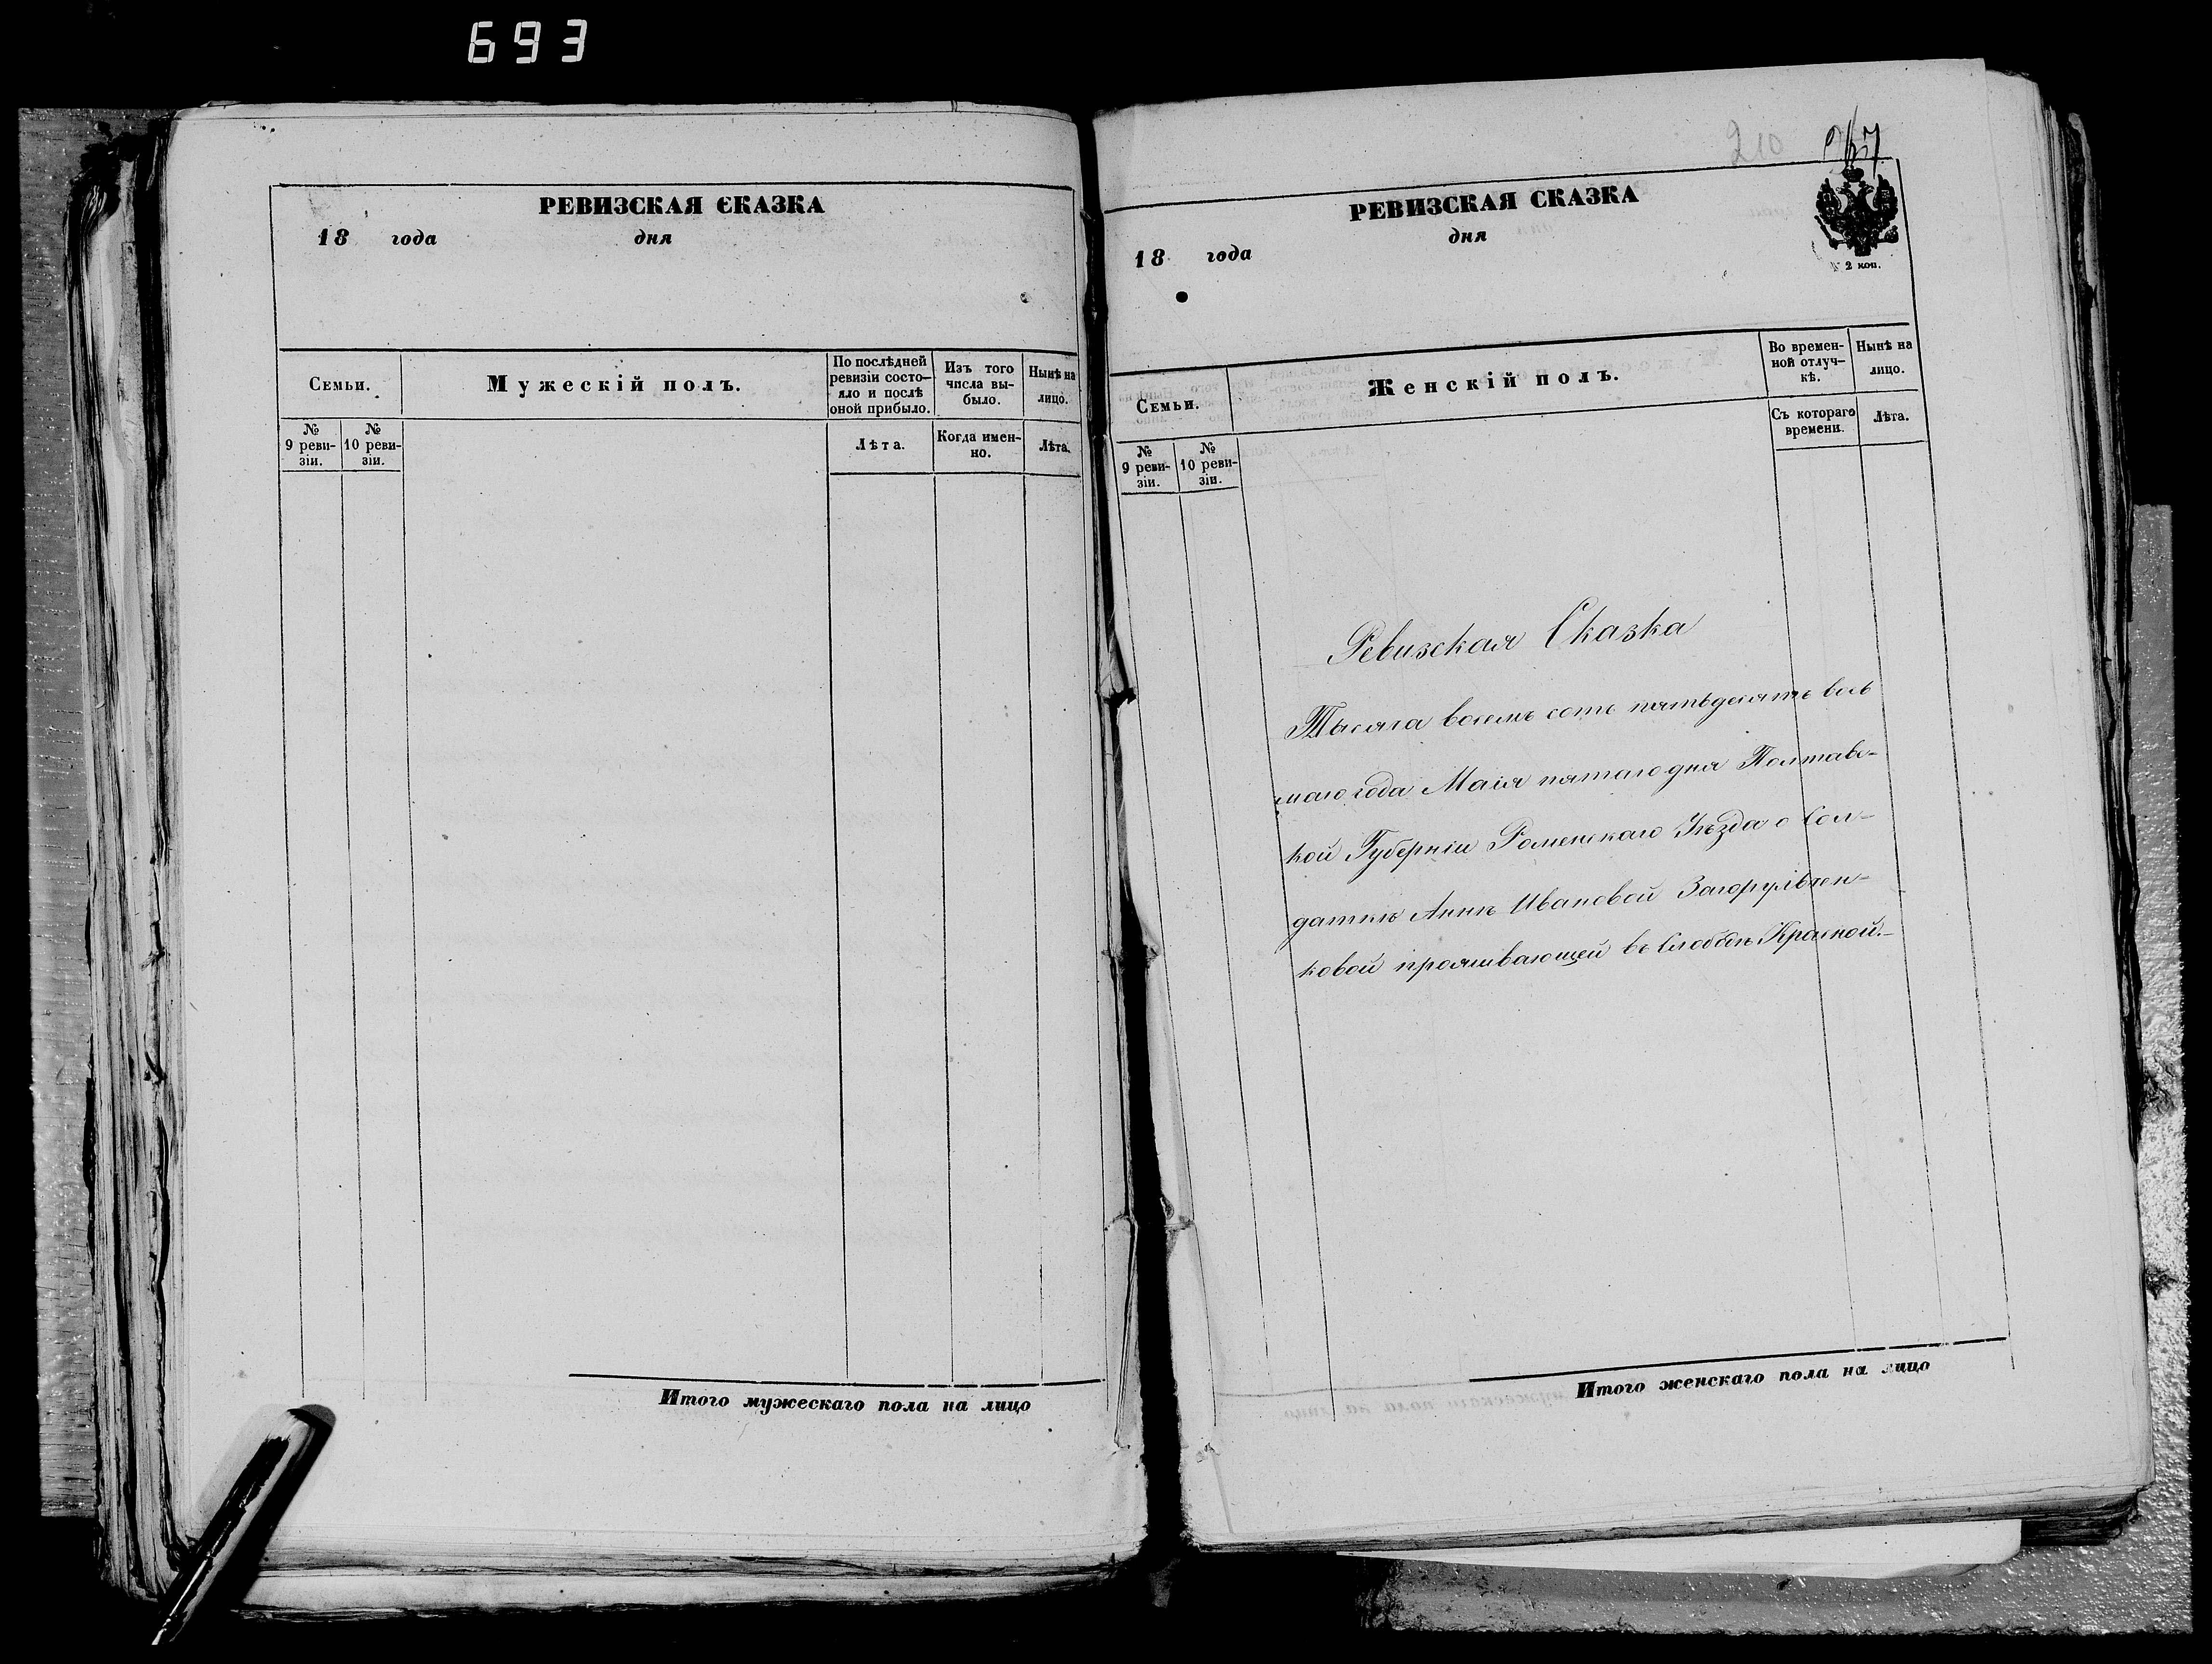 693
РЕВИЗСКАЯ СКАЗКА
18 года дня
Семьи.
Мужескій полъ.
По послѣдней ревизіи состо-
яло и послѣ
оной прибыло.
Изъ того
числа вы-
было.
Нынѣ на
лицо.
№
9 реви-
зіи.
№
10 реви-
зіи.
Лѣта.
Когда имен-
но.
Лѣта.
Итого мужескаго пола на лицо
210
РЕВИЗСКАЯ СКАЗКА
18 года дня
2 коп.
Семьи.
Женскій полъ.
Во времен-
ной отлуч-
кѣ.
Нынѣ на
лицо.
№
9 реви-
зіи.
№
10 реви-
зіи.
Съ котораго
времени.
Лѣта.
Ревизская Сказка
Тысяча восемь сотъ пятьдесятъ вось
маго года Маія пятаго дня Полтавс-
кой Губерніи Роменскаго Уѣзда о Сол-
даткѣ Аннѣ Ивановой Загорульчен-
ковой проживающей въ Слободѣ Красной.
Итого женскаго пола на лицо